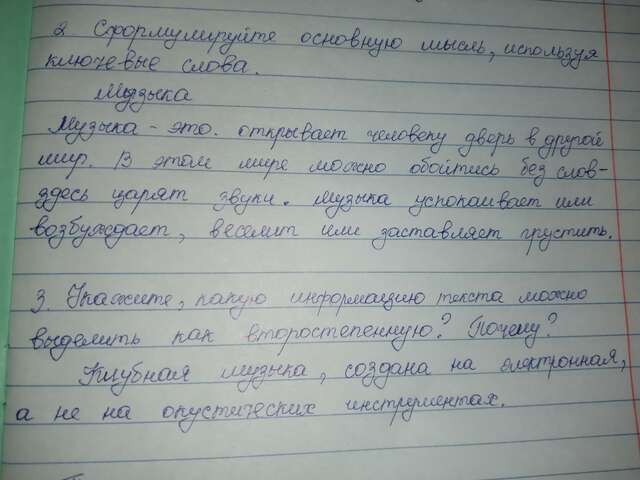 2 Сформулируйте основную мысль, используя
ключевые слова.
Музыка
Музыка - это. открывает человеку дверь в другой
мир. В этом мире можно обойтись без слов-
здесь царят звуки. Музыка успокаивает или
возбуждает, веселит или заставляет грустить.
3. Укажите, какую информацию текста можно
выделить как второстепенную? Почему?
Клубная музыка, создана на электронная,
а не на акустических инструментах.